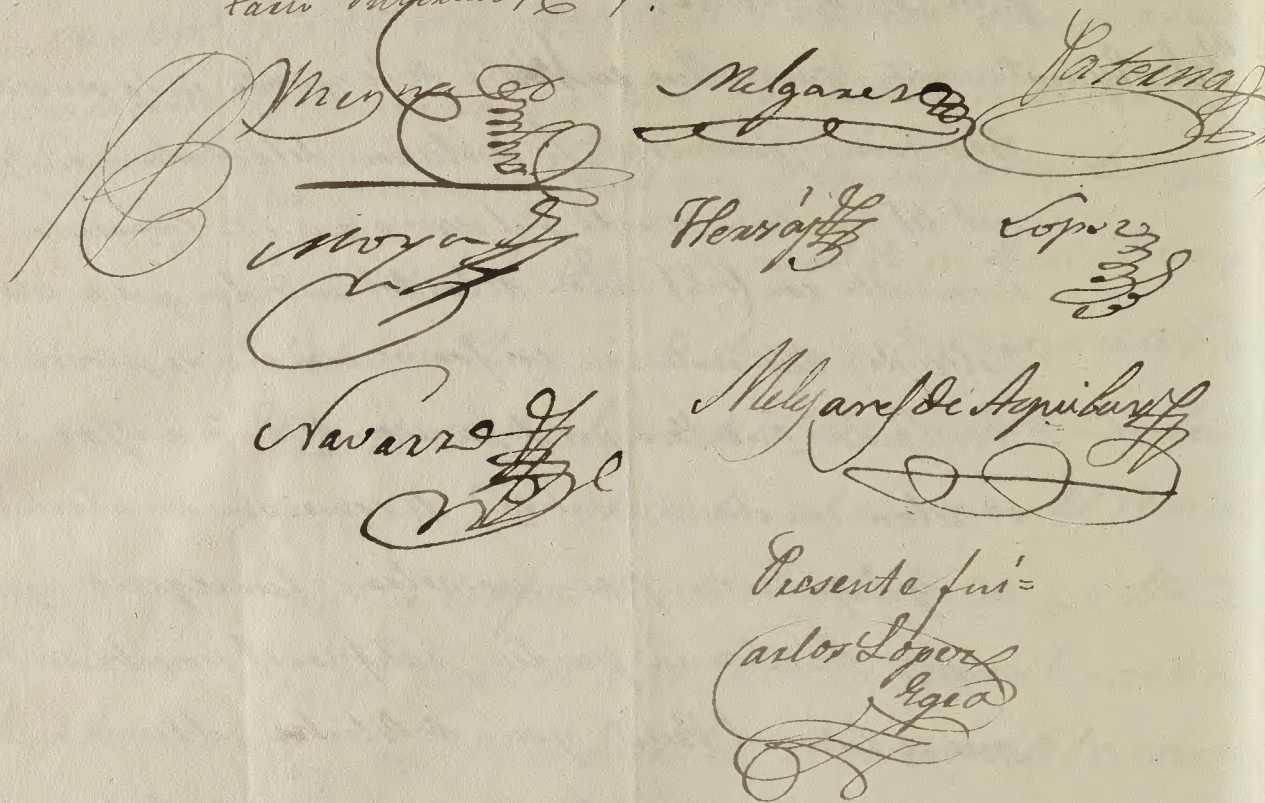 Melgares
Paterna
Moya
Herráiz
Lopez
Navarro
Melgares de Aguilar
Presente fui=
Carlos Lopez
Egea